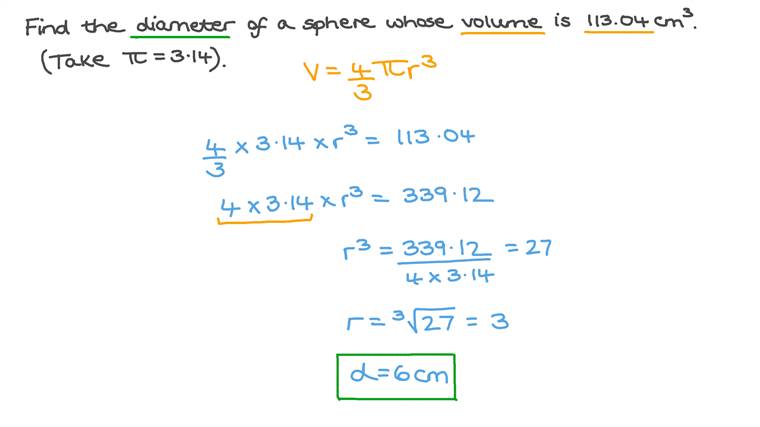 Find the diameter of a sphere whose volume is 113.04 cm³.
(Take π = 3·14).
V = 4/3 πr³
4/3 × 3·14 × r³ = 113·04
4 × 3·14 × r³ = 339·12
r³ = 339·12 / 4 × 3·14 = 27
r = ³√27 = 3
d = 6cm